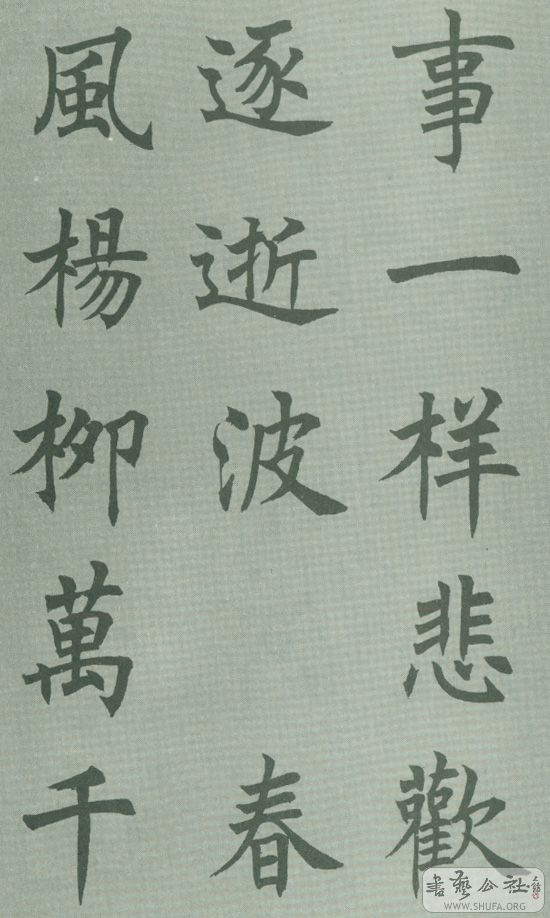 事一样悲歡
逐逝波 春
風楊柳萬千
書藝公社
WWW.SHUFA.ORG